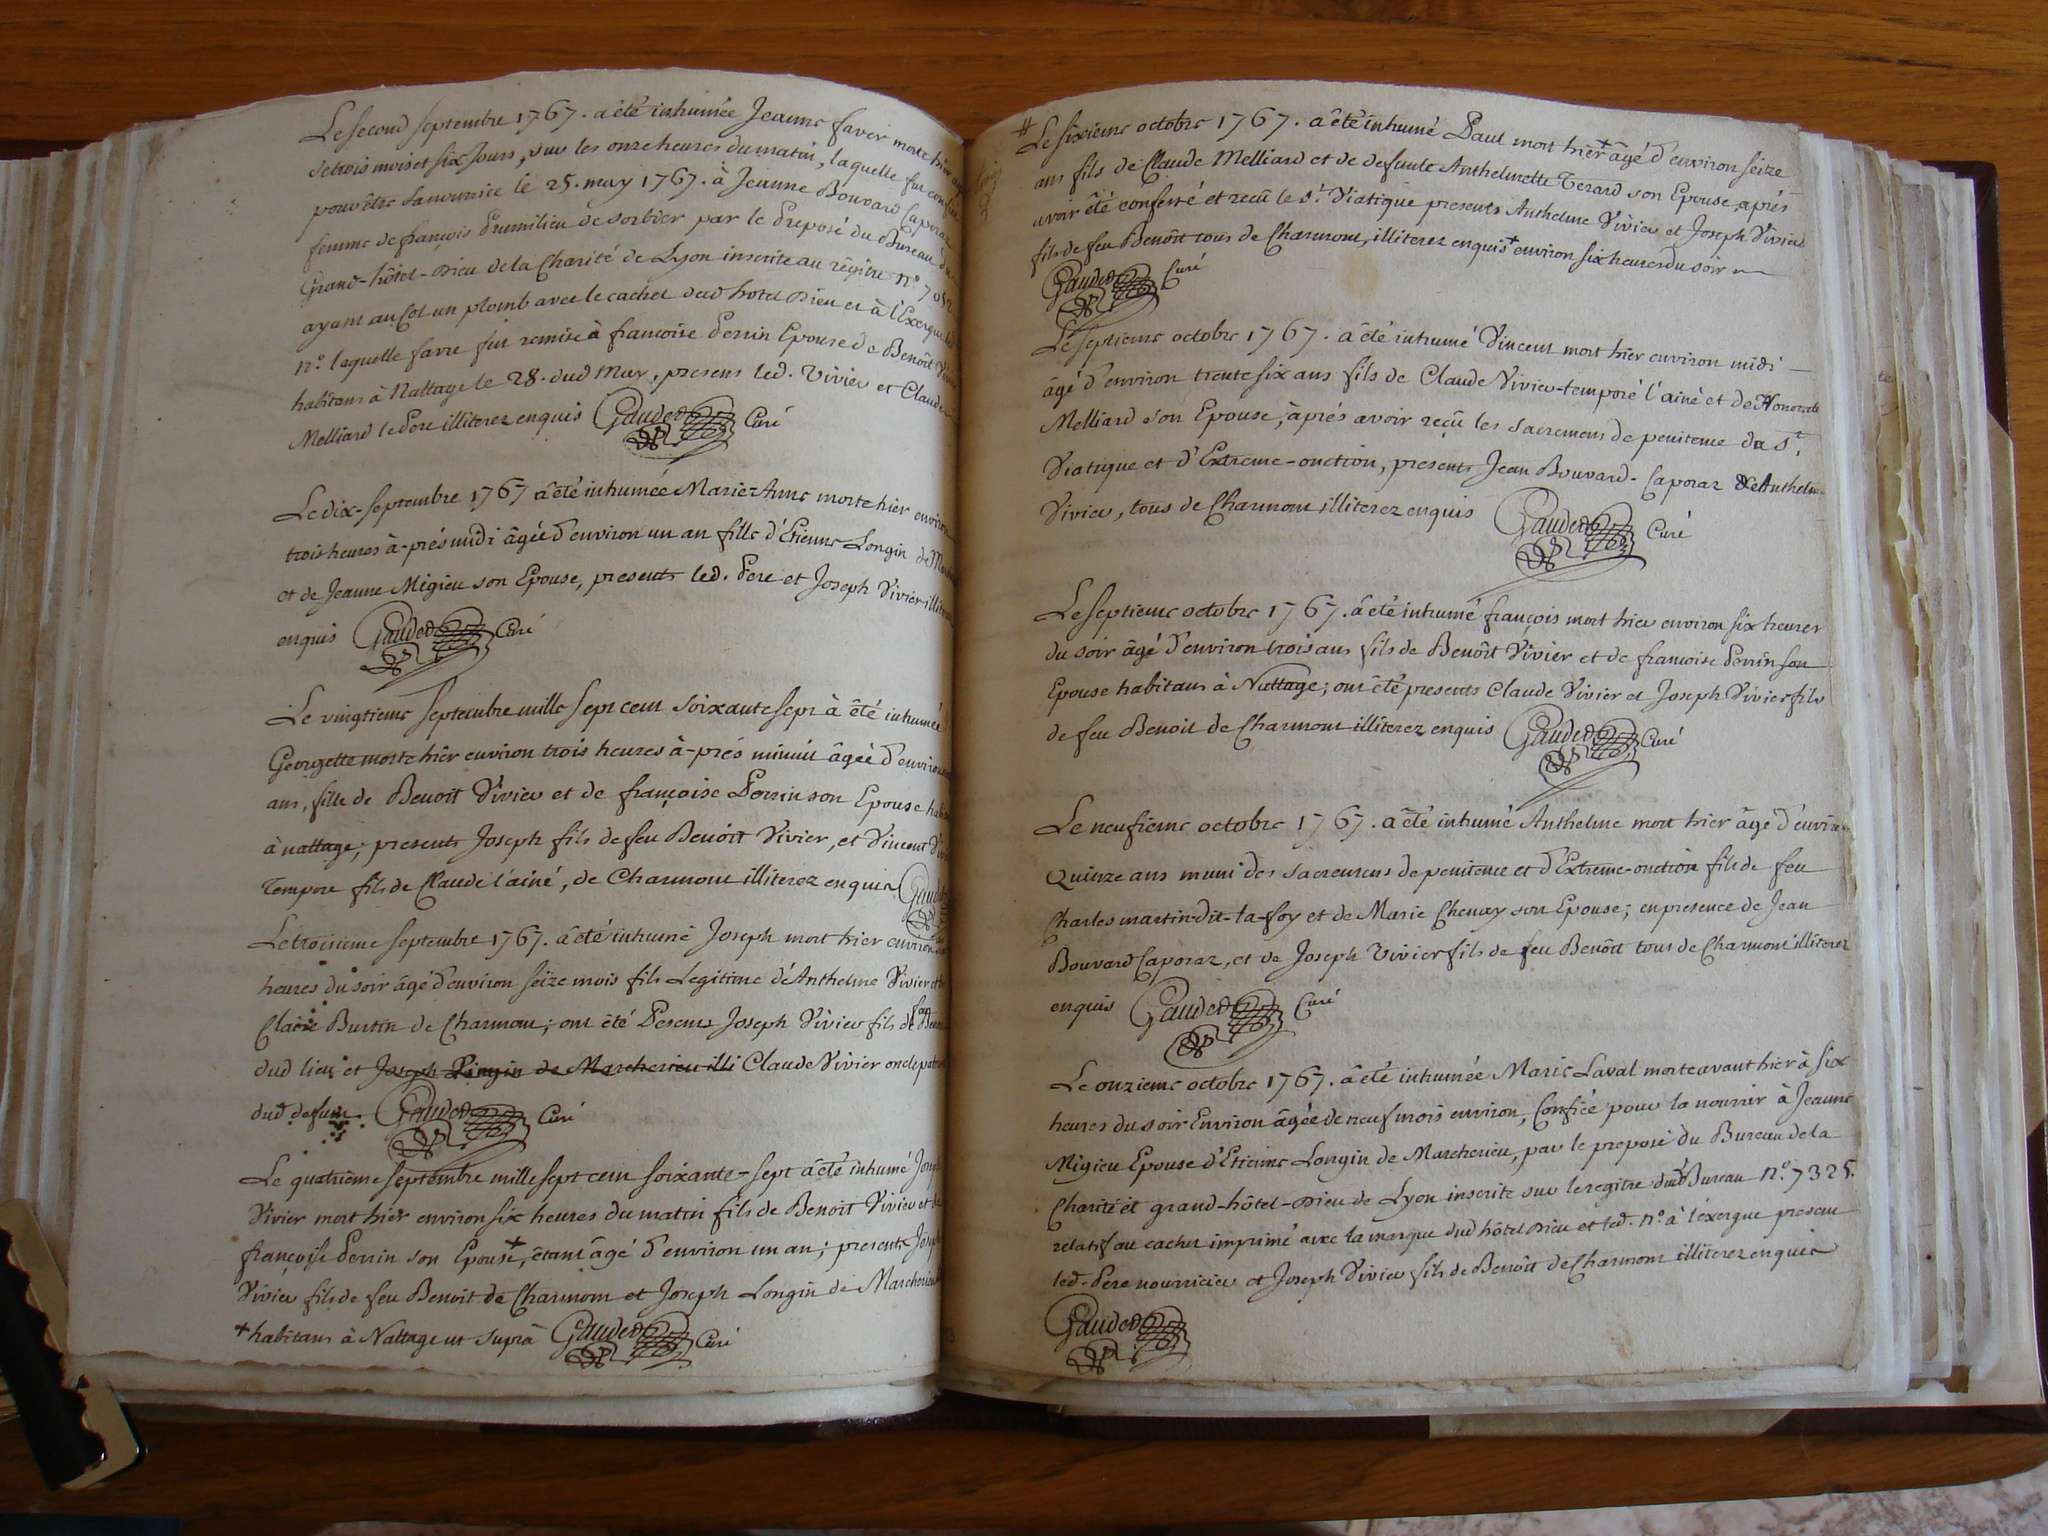 Le second septembre 1767. a été inhumée Jeanne favre morte hier
de trois mois et six jours, sur les onze heures du matin, laquelle fut
pour être la nourrice le 25. may 1767. à Jeanne Bouvard Caporaz
femme de françois Dumilieu de sorbier par le Preposé du Bureau du
Grand-hôtel-Dieu de la Charité de Lyon inscrite au régitre n°
ayant au Col un plomb avec le cachet dud hotel Dieu et à l'Exergue led
n°. laquelle favre fut remise à francoise Perrin Epouse de Benoît
habitans à Nattage le 28. dud May, presens led. Vivier et Claude
Melliard le Pere illiterez enquis Gaudet Curé
Le dix-septembre 1767 a été inhumée Marie-Anne morte hier environ
trois heures à-prés midi âgée d'environ un an fille d'Etienne Longin de
et de Jeanne Migieu son Epouse, presents led. Pere et Joseph Vivier
enquis Gaudet Curé
Le vingtieme septembre mille sept cent soixante sept à été inhumée
Georgette morte hier environ trois heures à-prés minuit âgée d'environ
ans, fille de Benoît Vivier et de françoise Perrin son Epouse
à nattage; presents Joseph fils de feu Benoît Vivier, et Vincent
Tempore fils de Claude l'ainé, de Charmont illiterez enquis Gaudet
Le troisieme septembre 1767. a été inhumé Joseph mort hier environ
heures du soir âgé d'environ seize mois fils Legitime d'Anthelme Vivier et
Claire Burtin de Charmon; ont été Presens Joseph Vivier fils de feu
dud lieu et Joseph Longin de Marcherieu illi Claude Vivier oncle
dud defunt. Gaudet Curé
Le quatrieme septembre mille sept cent soixante-sept a été inhumé
Vivier mort hier environ six heures du matin fils de Benoit Vivier et de
françoise Perrin son Epouse+, étant âgé d'environ un an; presents
Vivier fils de feu Benoit de Charmont et Joseph Longin de Marcherieu
+ habitans à Nattage ut suprà Gaudet Curé
# Le sixieme octobre 1767. a été inhumé Paul mort hier+ âgé d'environ seize
ans fils de Claude Melliard et de defunte Anthelmette Terard son Epouse, aprés
avoir été confessé et reçu le st. Viatique presents Anthelme Vivier et Joseph Vivier
fils de feu Benoît tous de Charmont, illiterez enquis + environ six heures du soir
Gaudet Curé
Le septieme octobre 1767. a été inhumé Vincent mort hier environ midi
âgé d'environ trente six ans fils de Claude Vivier-temporé l'ainé et de
Melliard son Epouse, aprés avoir reçû les sacremens de penitence du st.
Viatique et d'Extreme-onction, presents Jean Bouvard-Caporaz &
Vivier, tous de Charmont illiterez enquis Gaudet Curé
Le septieme octobre 1767. a été inhumé françois mort hier environ six heures
du soir âgé d'environ trois ans fils de Benoît Vivier et de francoise Perrin son
Epouse habitans à Nattage; ont été presents Claude Vivier et Joseph Vivier fils
de feu Benoit de Charmont illiterez enquis Gaudet Curé
Le neufieme octobre 1767. a été inhumé Anthelme mort hier âgé d'environ
Quinze ans muni des sacremens de penitence et d'Extreme-onction fils de feu
Charles martin-dit-la-foy et de Marie Chenay son Epouse; en presence de Jean
Bouvard Caporaz, et de Joseph Vivier fils de feu Benôit tous de Charmont illiterez
enquis Gaudet Curé
Le onzieme octobre 1767. a été inhumée Marie Laval morte avant hier à six
heures du soir Environ âgée de neuf mois environ, Confiée pour la nourrir à Jeanne
Migieu Epouse d'Etienne Longin de Marcherieu, par le preposé du Bureau de la
Charité et grand-hôtel-Dieu de Lyon inscrite sur le regitre dud Bureau n°. 7325.
relatif au cachet imprimé avec la marque dud hôtel Dieu et led. n° à l'éxergue present
led-Pere nourricier et Joseph Vivier fils de Benôit de Charmont illiterez enquis
Gaudet